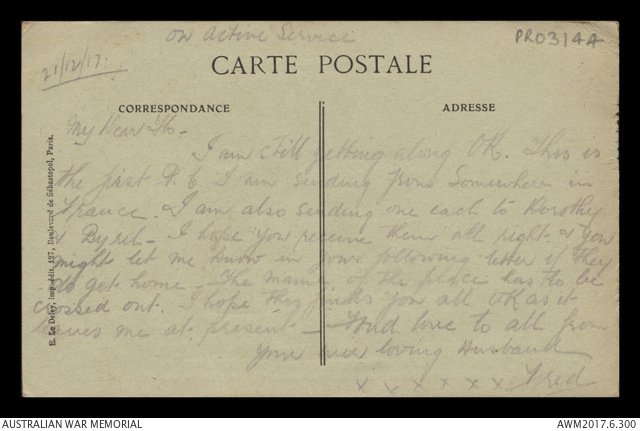 on Active Service
PRO314A
21/12/17.
CARTE POSTALE
CORRESPONDANCE
ADRESSE
My Dear
I am still getting along OK. This is
the first P.C. I am sending from Somewhere in
France. I am also sending one each to Dorothy
& I hope you receive them all right & you
might let me know in your following letter if they
do get home. The name of the place has to be
crossed out. I hope this finds you all OK as it
leaves me at present - Fond love to all from
Your ever loving Husband
x x x x x x Fred
E. Le Deley, imp.-édit., 127, Boulevard de Sébastopol, Paris.
AUSTRALIAN WAR MEMORIAL
AWM2017.6.300